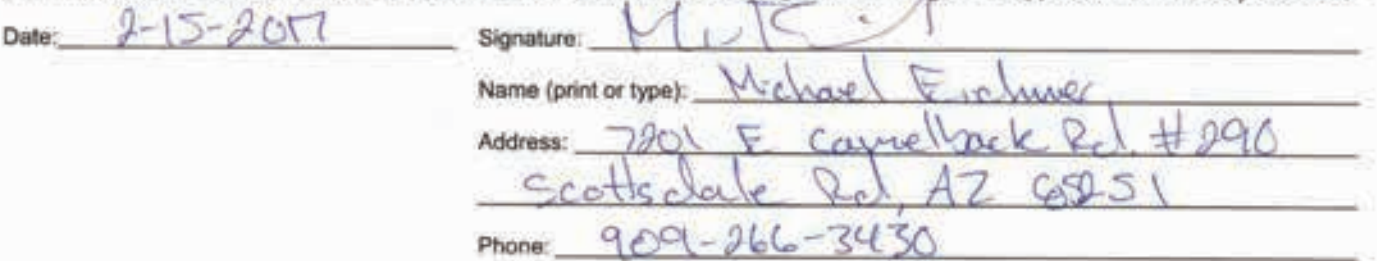 Date: 2-15-2017
Signature:
Name (print or type): Michael Eichner
Address: 7201 E Camelback Rd. #290
Scottsdale Rd, AZ 85251
Phone: 909-266-3430